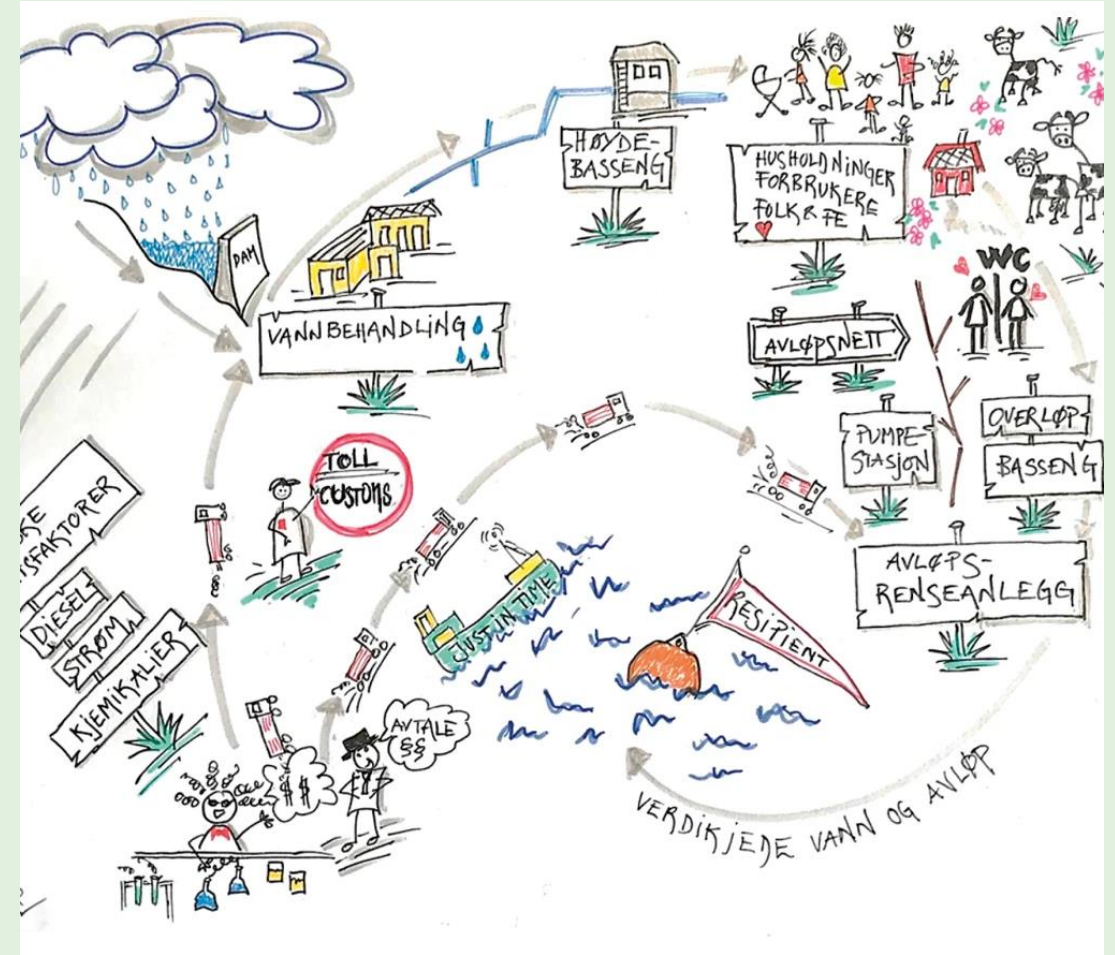 DAM
VANNBEHANDLING
HØYDE-
BASSENG
HUSHOLDNINGER
FORBRUKERE
FOLK & FE
WC
AVLØPSNETT
PUMPE-
STASJON
OVERLØP
BASSENG
AVLØPS-
RENSEANLEGG
TOLL
CUSTOMS
JUST IN TIME
RESIPIENT
DIESEL
STRØM
KJEMIKALIER
$ $
AVTALE
§§
VERDIKJEDE VANN OG AVLØP